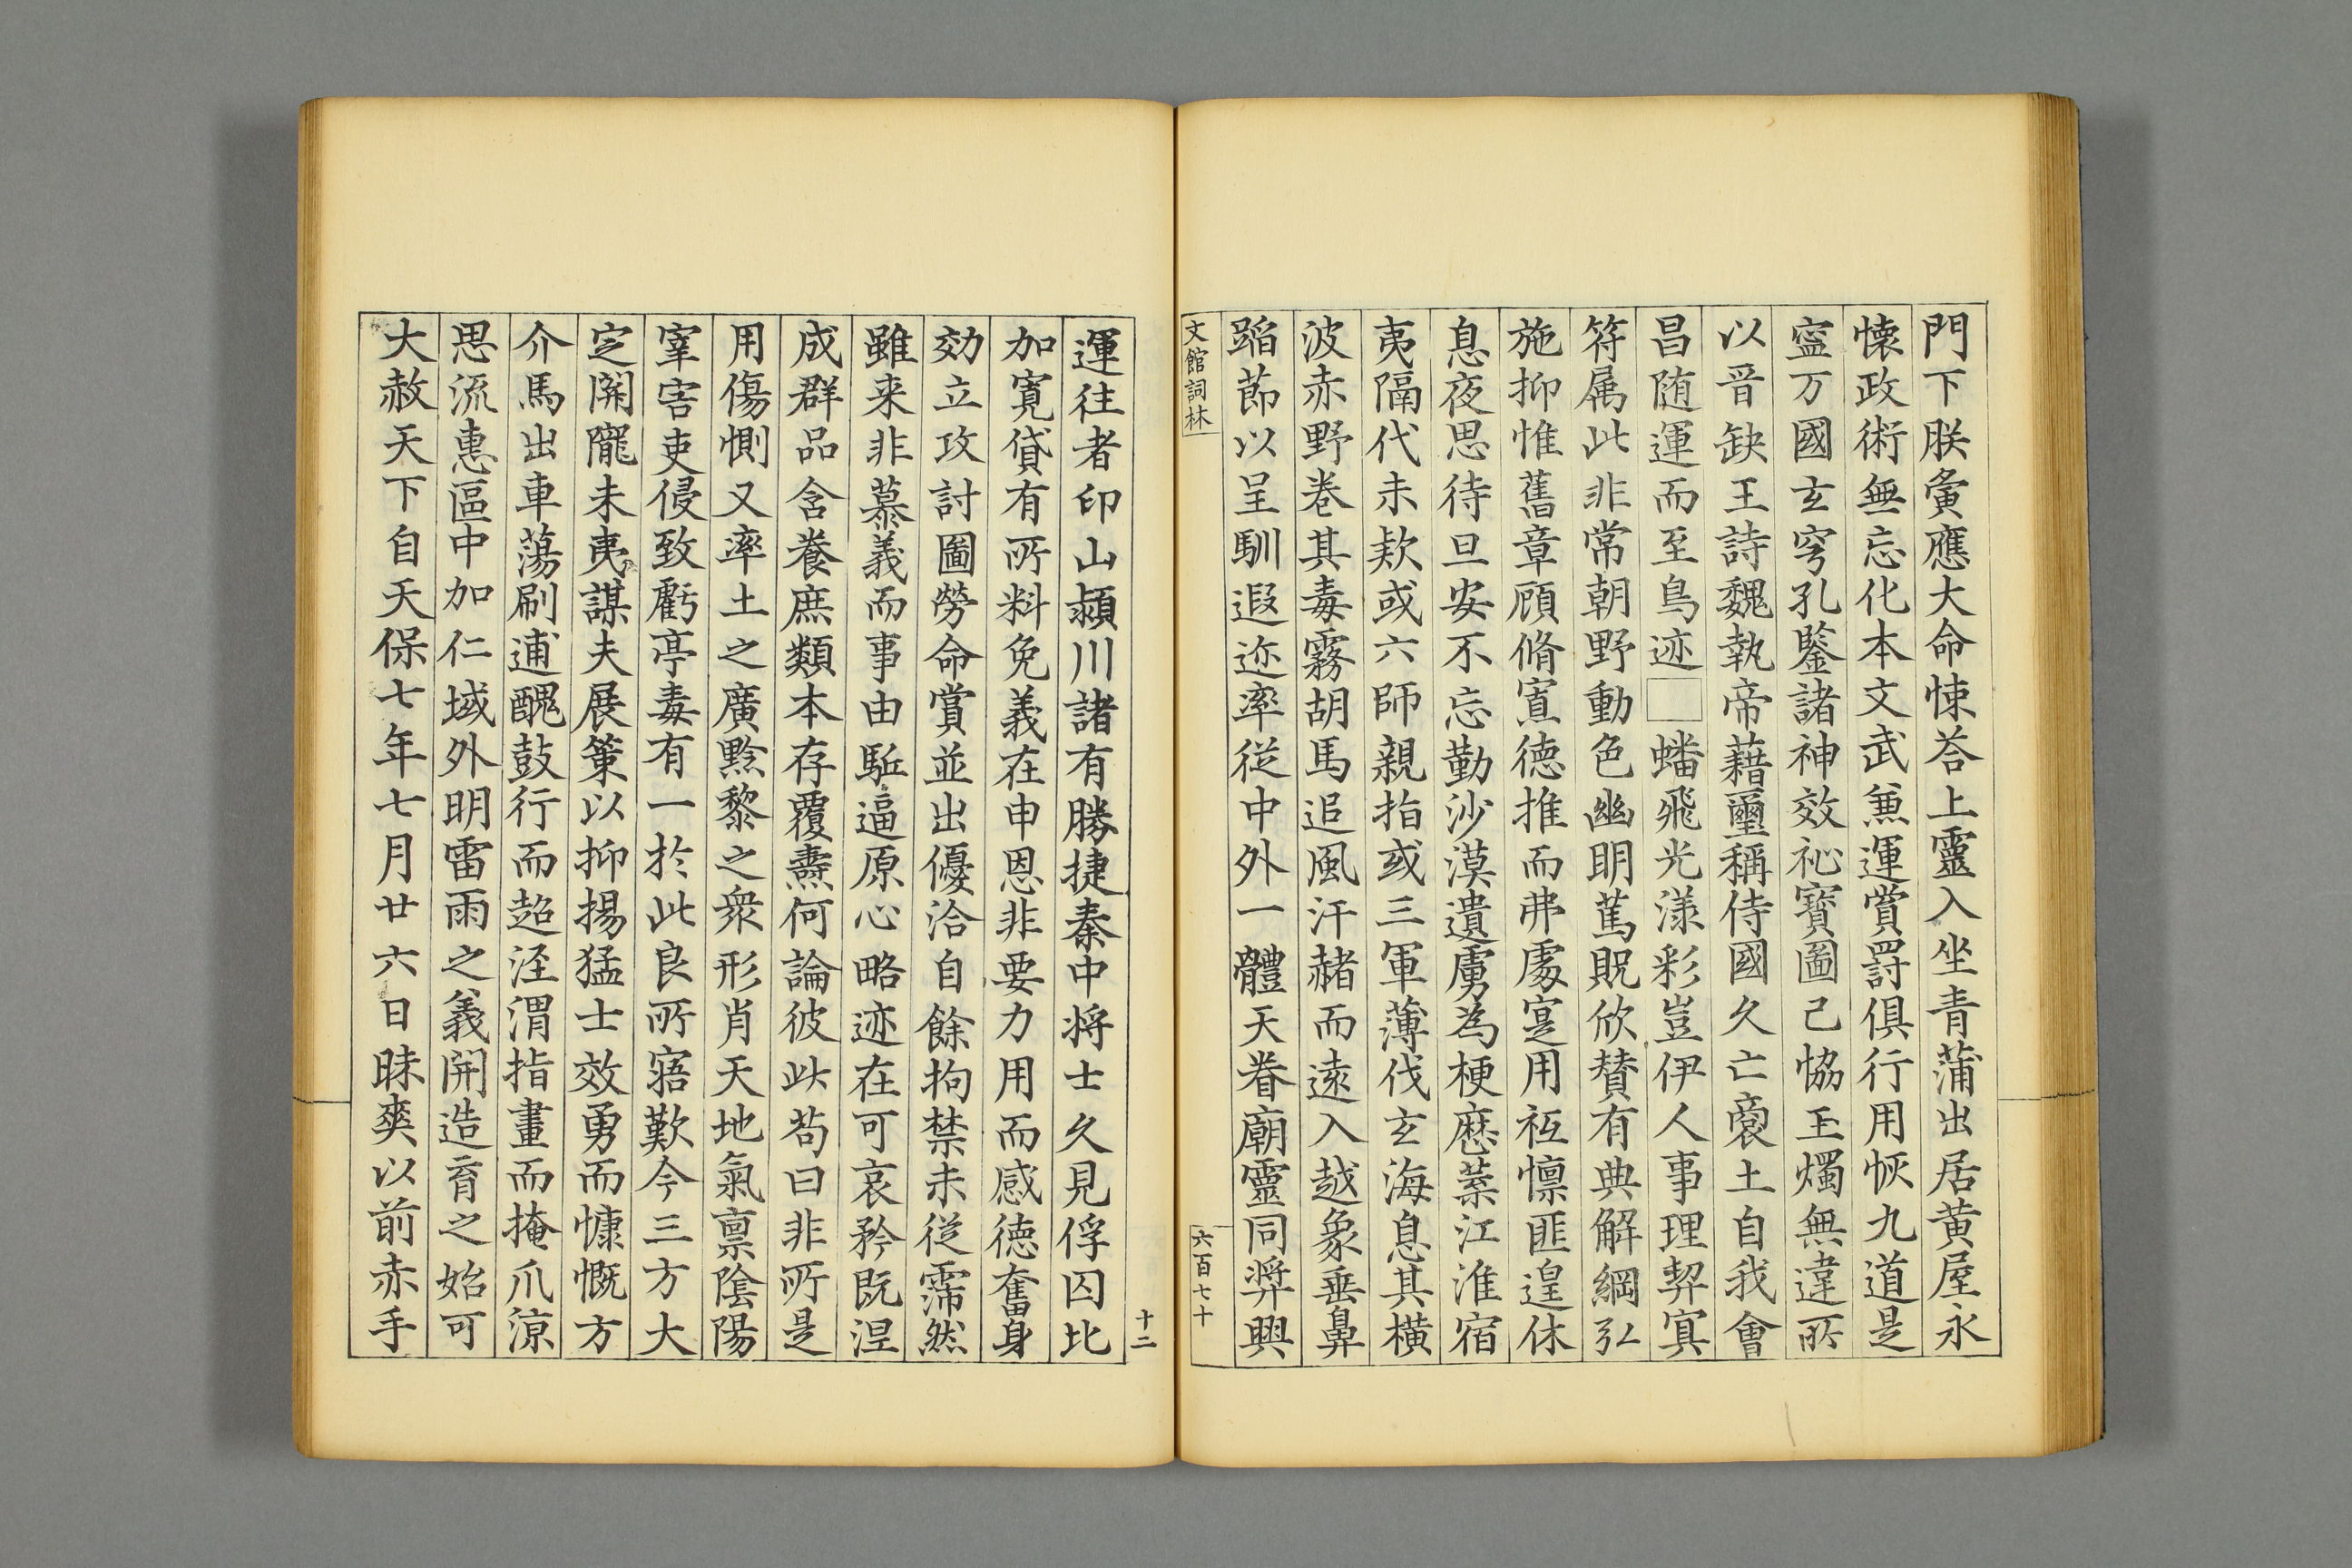 門下朕夤應大命悚荅上靈入坐青蒲出居黄屋永
懐政術無忘化本文武兼運賞罸俱行用恢九道是
寍万國玄穹孔鑒諸神效祉寳圖己恊玉燭無違所
以晋缺王詩魏執帝藉璽稱侍國久亡裔土自我會
昌随運而至鳥迹□蟠飛光漾彩豈伊人事理契寘
符属此非常朝野動色幽明篤貺欣賛有典解綱弘
施抑惟舊章顧脩寘德推而弗處寔用袛懔匪遑休
息夜思待旦安不忘勤沙漠遺虜為梗歴葉江淮宿
夷隔代未欵或六師親指或三軍薄伐玄海息其橫
波赤野卷其毒霧胡馬追風汗赭而遠入越象垂鼻
蹈莭以呈馴遐迩率從中外一體天眷廟靈同弉興
文館詞林
六百七十
十二
運往者印山潁川諸有勝捷秦中将士久見俘囚比
加寛貸有所料免義在申恩非要力用而感德奮身
効立攻討圖勞命賞並出優洽自餘拘禁未従霈然
雖来非慕義而事由駈逼原心略迹在可哀矜既涅
成群品含養庶類本存覆燾何論彼此茍曰非所是
用傷惻又率土之廣黔黎之衆形肖天地氣禀陰陽
宰害吏侵致虧亭毒有一扵此良所寤歎今三方大
定關隴未夷謀夫展策以抑揚猛士效勇而慷慨方
介馬出車蕩刷逋醜鼓行而超泾渭指畫而掩爪涼
思流惠區中加仁域外明雷雨之義開造育之始可
大赦天下自天保七年七月廿六日昧爽以前赤手